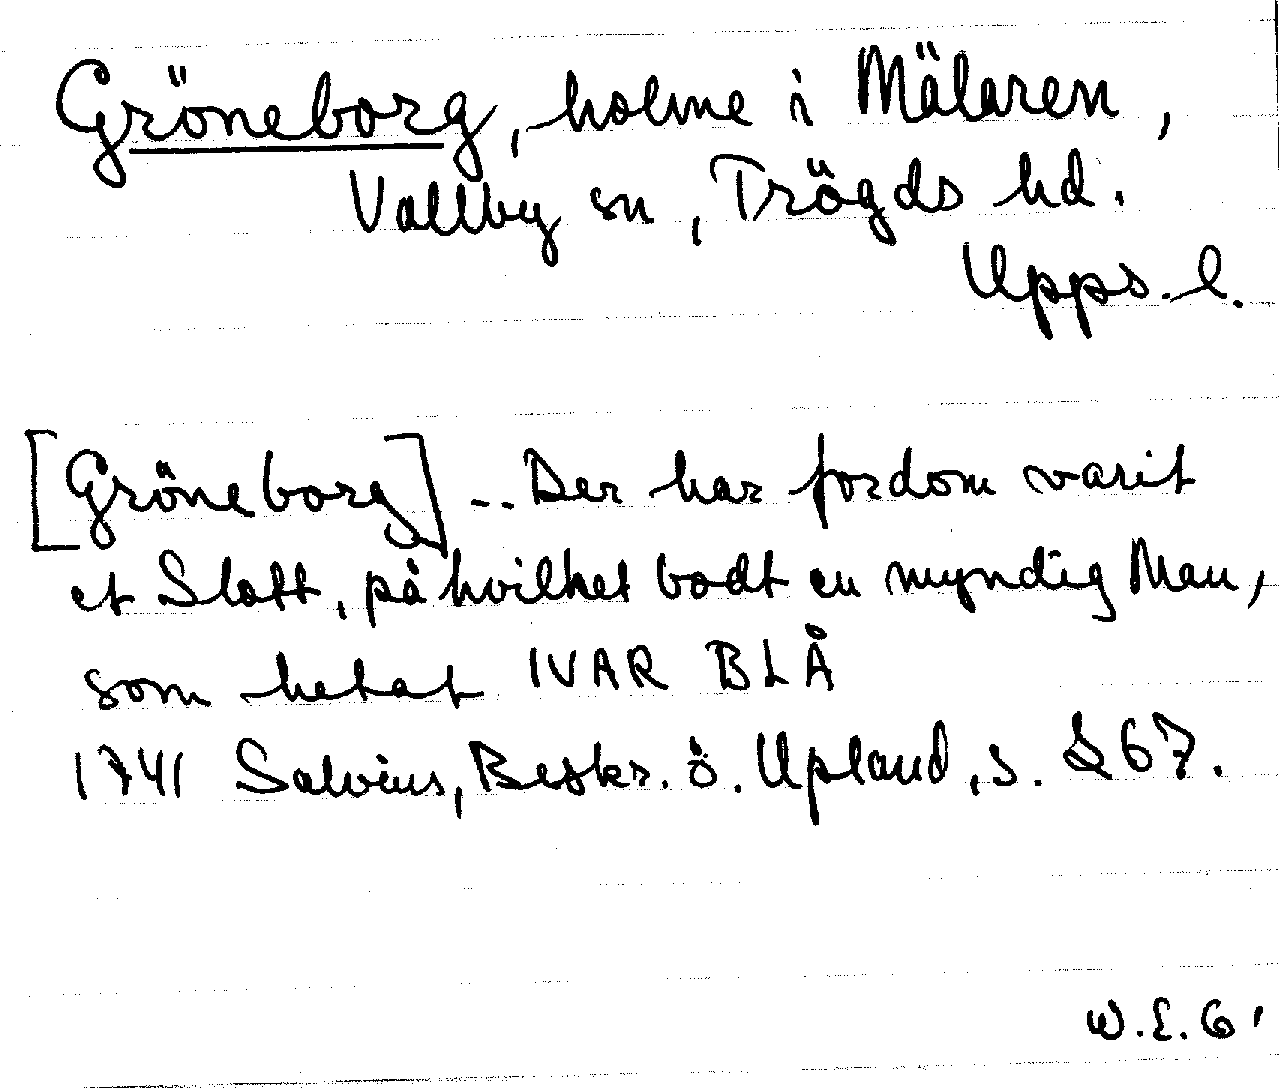 Gröneborg, holme i Mälaren,
Vallby sn, Trögds hd.
Upps. l.
[Gröneborg] -.. Der har fordom varit
et Slott, på hvilket bodt en myndig Man,
som hetat IVAR BLÅ
1741 Salvius, Beskr. ö. Upland, s. 267.
W.E.G.